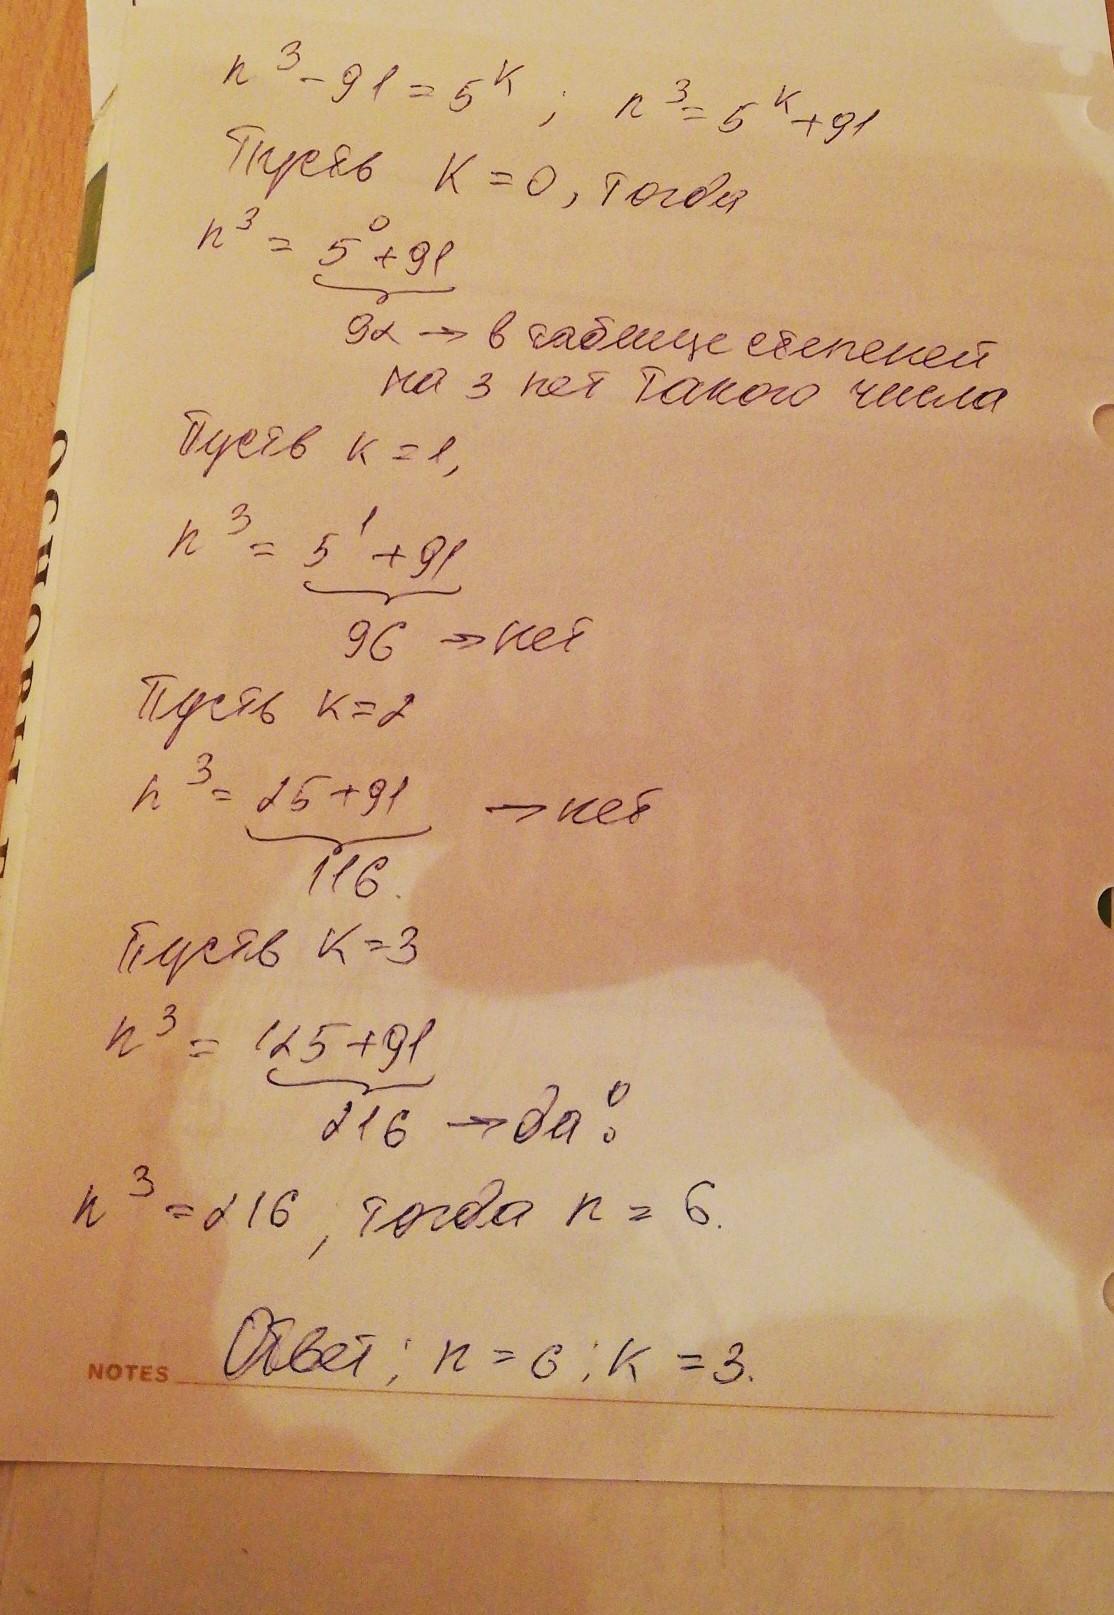 n³-91=5ᵏ; n³=5ᵏ+91
Пусть K=0, тогда
n³ = 5⁰+91
92 → в таблице степеней
на 3 нет такого числа
Пусть к=1,
n³ = 5¹+91
96 → нет
Пусть к=2
n³= 25+91 → нет
116.
Пусть к=3
n³ = 125+91
216 → да!
n³=216, тогда n = 6.
Ответ: n=6; к=3.
NOTES
ОСНОВЫ